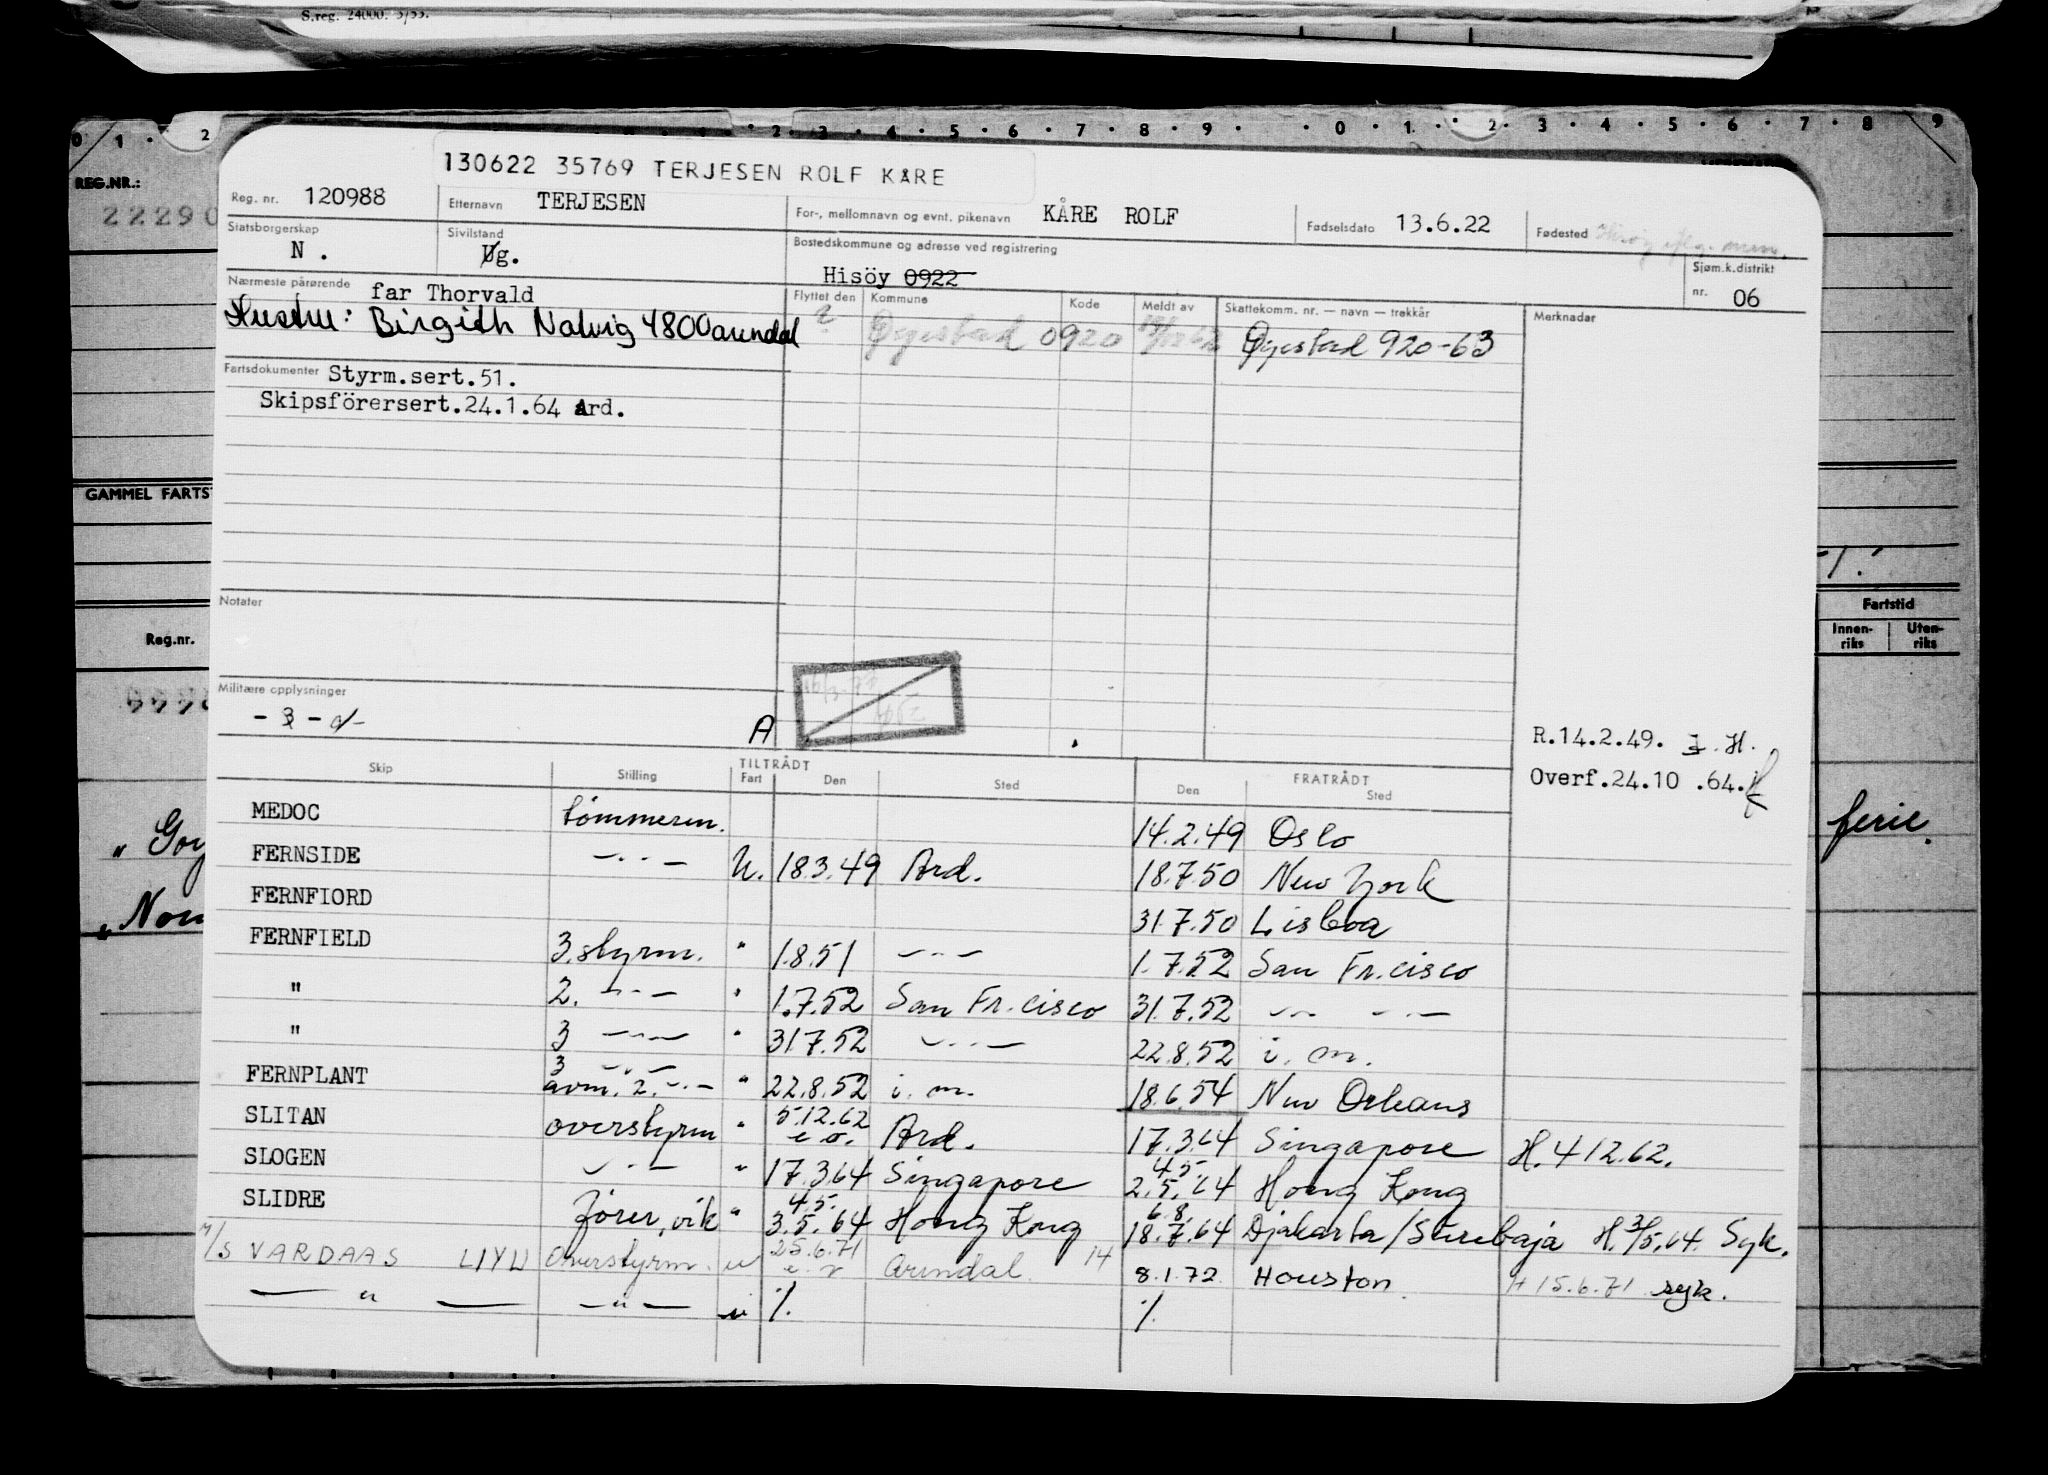 S.reg. 24000. 5/55.
0 1 2 2 3 4 5 6 7 8 9 0 1 2 3 4 5 6 7 8 9
REG.NR.:
22290
130622 35769 TERJESEN ROLF KÅRE
Reg. nr. 120988 Etternavn TERJESEN For-, mellomnavn og evnt. pikenavn KÅRE ROLF Fødselsdato 13.6.22 Fødested
Statsborgerskap N. Sivilstand Ug. Bostedskommune og adresse ved registrering Hisöy 0922 Sjøm.k.distrikt nr. 06
Nærmeste pårørende far Thorvald
Hustru: Birgith Nalvig 4800 arendal
Flyttet den Kommune Kode Meldt av Skattekomm. nr. — navn — trekkår Merknader
? Øyestad 0920 Øyestad 920-63
Fartsdokumenter Styrm.sert.51.
Skipsförersert.24.1.64 Ard.
GAMMEL FARTST
Notater
Reg.nr.
Fartstid
Innen-riks Uten-riks
Militære opplysninger
- 3 - d-
A
R.14.2.49. I.H.
Overf.24.10.64.
Skip Stilling TILTRÅDT Fart Den Sted FRATRÅDT Den Sted
MEDOC tömmerm. 14.2.49 Oslo
FERNSIDE —"— U. 18.3.49 Ard. 18.7.50 New York
FERNFIORD 31.7.50 Lisboa
FERNFIELD 3.styrm. " 1.8.51 —"— 1.7.52 San Fr.cisco
" 2. —"— " 1.7.52 San Fr.cisco 31.7.52 —"— —"—
" 3 —"— " 31.7.52 —"— 22.8.52 i. m.
FERNPLANT 3 —"— avm. 2. —"— " 22.8.52 i. m. 18.6.54 New Orleans
SLITAN overstyrm " 5.12.62 e.o. Ard. 17.3.64 Singapore H.4 12.62.
SLOGEN —"— " 17.3.64 Singapore 4.5. 2.5.64 Hong Kong
SLIDRE fører, vik " 4.5. 3.5.64 Hong Kong 6.8. 18.7.64 Djakarta/Surebaja H.3/5.64. Syk.
M/S VARDAAS LIYU Overstyrm. u 25.6.71 Arendal 14 8.1.72 Houston H 15.6.71 syk.
— " — — " — u % %
" Nor
ferie.